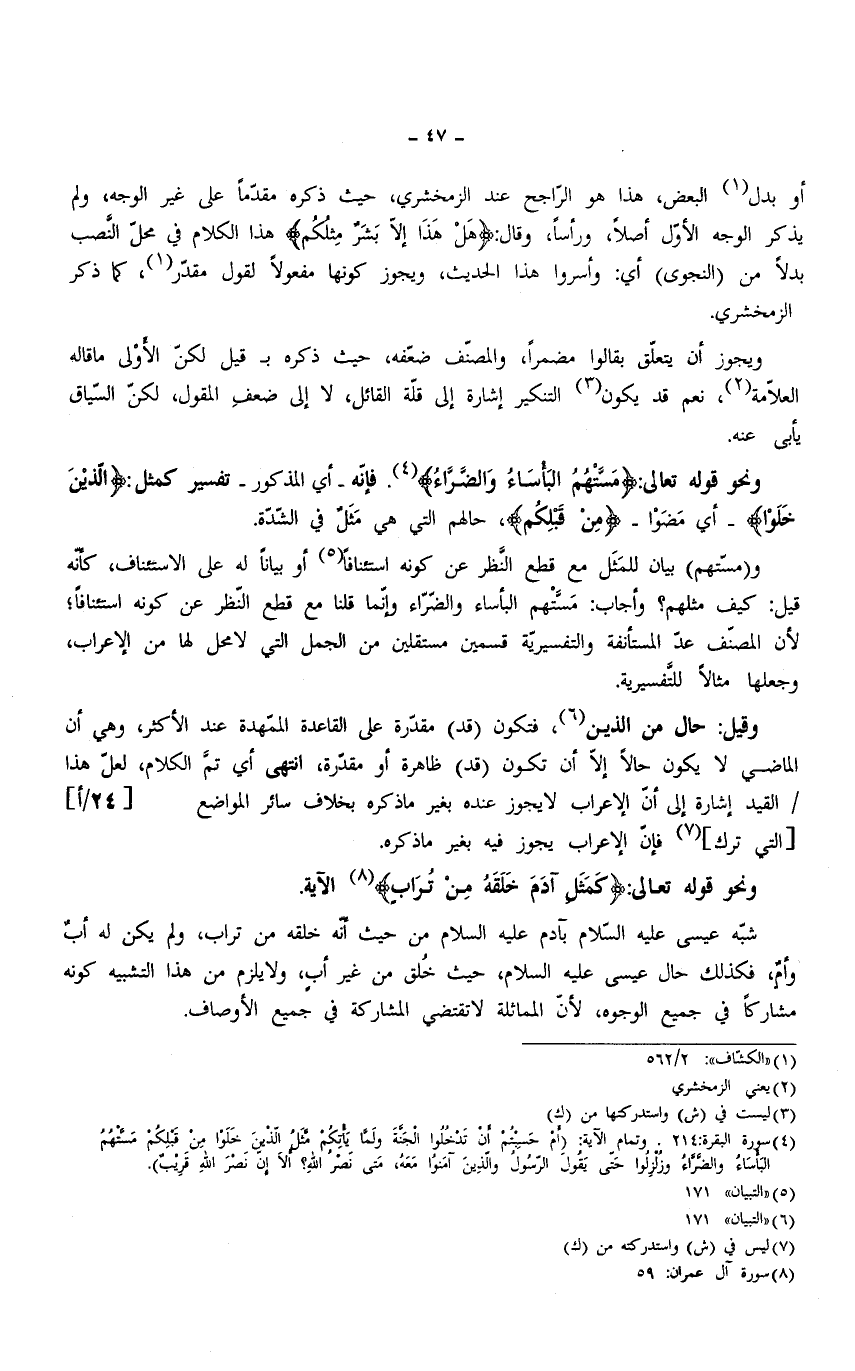 - ٤٧ -
أو بدل(١) البعض، هذا هو الرّاجح عند الزمخشري، حيث ذكره مقدّماً على غير الوجه، ولم
يذكر الوجه الأوّل أصلاً، ورأساً، وقال:﴿هَلْ هَذَا إلاّ بَشَرٌ مِثلُكُم﴾ هذا الكلام في محلّ النَّصب
بدلاً من (النجوى) أي: وأسروا هذا الحديث، ويجوز كونها مفعولاً لقول مقدّر(١)، كما ذكر
الزمخشري.
ويجوز أن يتعلّق بقالوا مضمراً، والمصنّف ضعّفه، حيث ذكره بـ قيل لكنّ الأَوْلى ماقاله
العلاّمة(٢)، نعم قد يكون(٣) التنكير إشارة إلى قلّة القائل، لا إلى ضعفِ المقول، لكنّ السّياق
يأبى عنه.
ونحو قوله تعالى:﴿مَسَّتْهُمُ البَأْسَاءُ وَالضَّرَّاءُ﴾(٤). فإنّه ـ أي المذكور ـ تفسير كمثل:﴿الَّذيْنَ
خَلَوْا﴾ ـ أي مَضَوْا ـ ﴿مِنْ قَبْلِكُم﴾، حالهم التي هي مَثَلٌ في الشّدّة.
و(مسّتهم) بيان للمَثَل مع قطع النَّظر عن كونه استئنافاً(٥) أو بياناً له على الاستئناف، كأنّه
قيل: كيف مثلهم؟ وأجاب: مَسَّتْهم البأساء والضّرّاء وإنّما قلنا مع قطع النّظر عن كونه استئنافاً؛
لأن المصنّف عدّ المستأنفة والتفسيريّة قسمين مستقلين من الجمل التي لامحل لها من الإعراب،
وجعلها مثالاً للتَّفسيرية.
وقيل: حال من الذين(٦)، فتكون (قد) مقدّرة على القاعدة الممّهدة عند الأكثر، وهي أن
الماضي لا يكون حالاً إلاّ أن تكون (قد) ظاهرة أو مقدّرة، انتهى أي تمَّ الكلام، لعلّ هذا
/ القيد إشارة إلى أنّ الإعراب لايجوز عنده بغير ماذكره بخلاف سائر المواضع [٢٤/أ]
[التي ترك](٧) فإنّ الإعراب يجوز فيه بغير ماذكره.
ونحو قوله تعالى:﴿كَمَثَلِ آدَمَ خَلَقَهُ مِنْ تُرَابٍ﴾(٨) الآية.
شبّه عيسى عليه السّلام بآدم عليه السلام من حيث أنّه خلقه من تراب، ولم يكن له أبٌ
وأمٌ، فكذلك حال عيسى عليه السلام، حيث خُلق من غير أبٍ، ولايلزم من هذا التشبيه كونه
مشاركاً في جميع الوجوه، لأنّ المماثلة لاتقتضي المشاركة في جميع الأوصاف.
(١) «الكشّاف»: ٥٦٢/٢
(٢) يعني الزمخشري
(٣) ليست في (ش) واستدركتها من (ك)
(٤) سورة البقرة:٢١٤ . وتمام الآية: (أَمْ حَسِبْتُمْ أَنْ تَدْخُلُوا الْجَنَّةَ وَلَمَّا يَأْتِكُمْ مَّثَلُ الَّذينَ خَلَوْا مِنْ قَبْلِكُمْ مَسَّتْهُمُ
البَأْسَاءُ والضَّرَّاءُ وزُلْزِلُوا حَتّى يَقُولَ الرّسُولُ والَّذِينَ آمَنُوا مَعَهُ، مَتى نَصْرُ اللهِ؟ ألاَ إن نَصْرَ اللهِ قَرِيْبٌ).
(٥) «التبيان» ١٧١
(٦) «التبيان» ١٧١
(٧) ليس في (ش) واستدركته من (ك)
(٨) سورة آل عمران: ٥٩